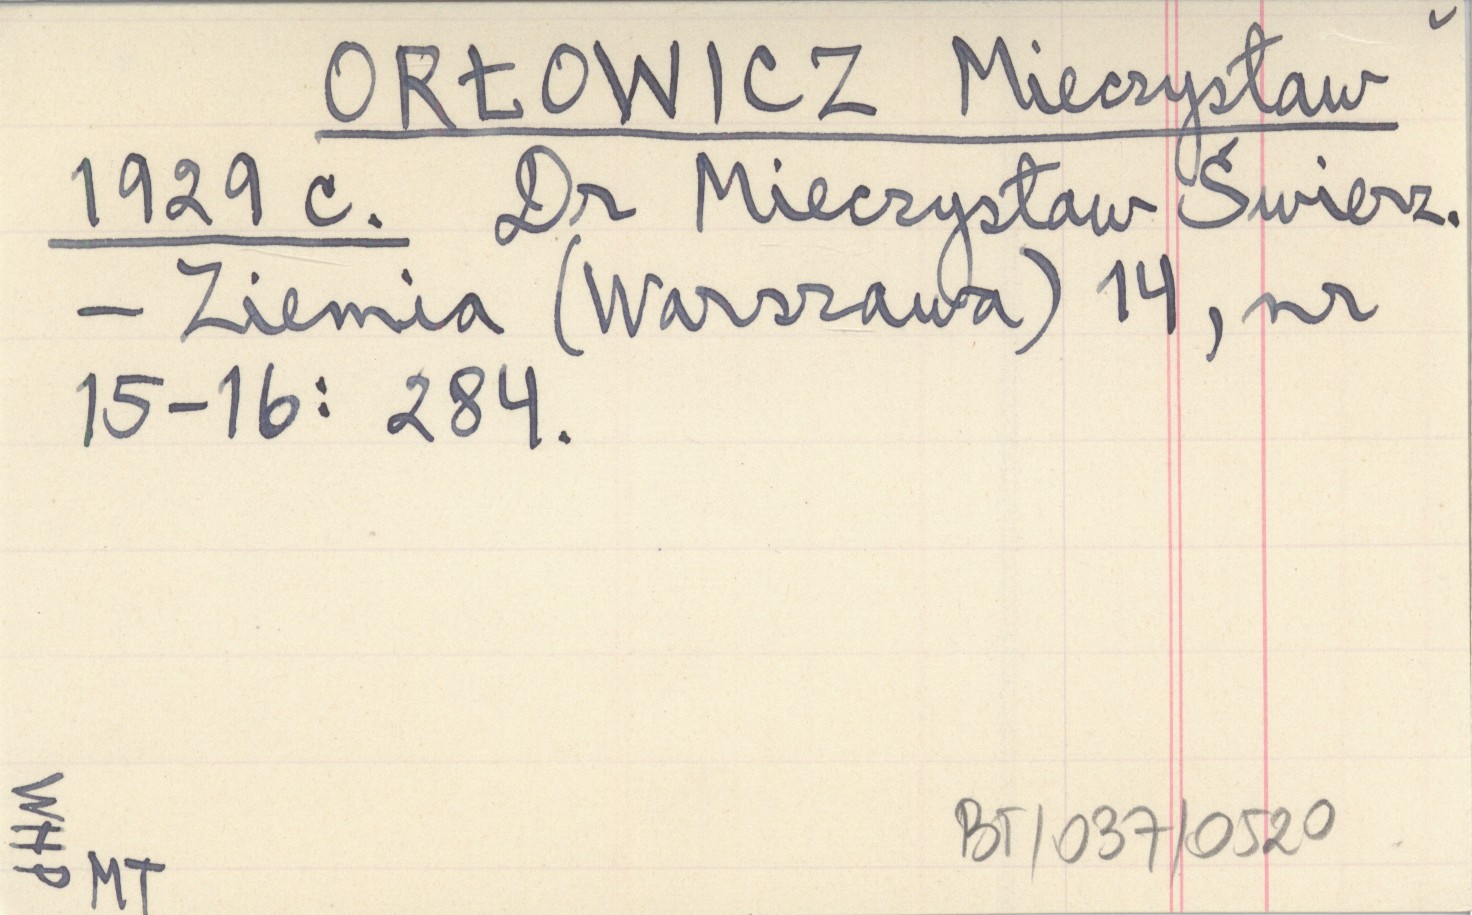 ORŁOWICZ Mieczysław
1929 c. Dr Mieczysław Świerz.
– Ziemia (Warszawa) 14, nr
15–16: 284.
WHP
MT
BT/037/0520